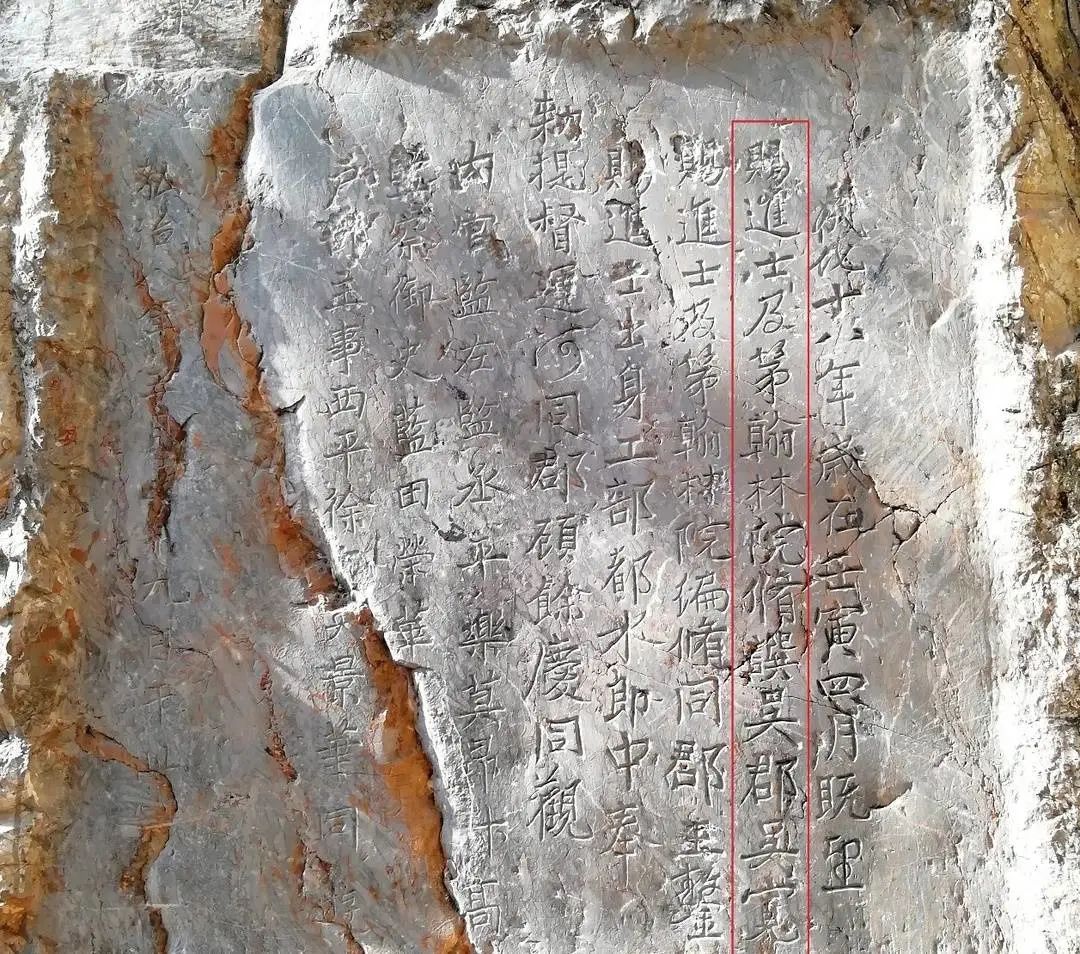 成化十八年歲在壬寅四月既望
賜進士及第翰林院脩撰吳郡吳寬
賜進士及第翰林院編脩同郡王鏊
賜進士出身工部都水郎中奉
敕提督運河同郡顧餘慶同觀
内官監左監丞平樂莫昂 高
監察御史藍田榮華
戶部主事西平徐 景華同